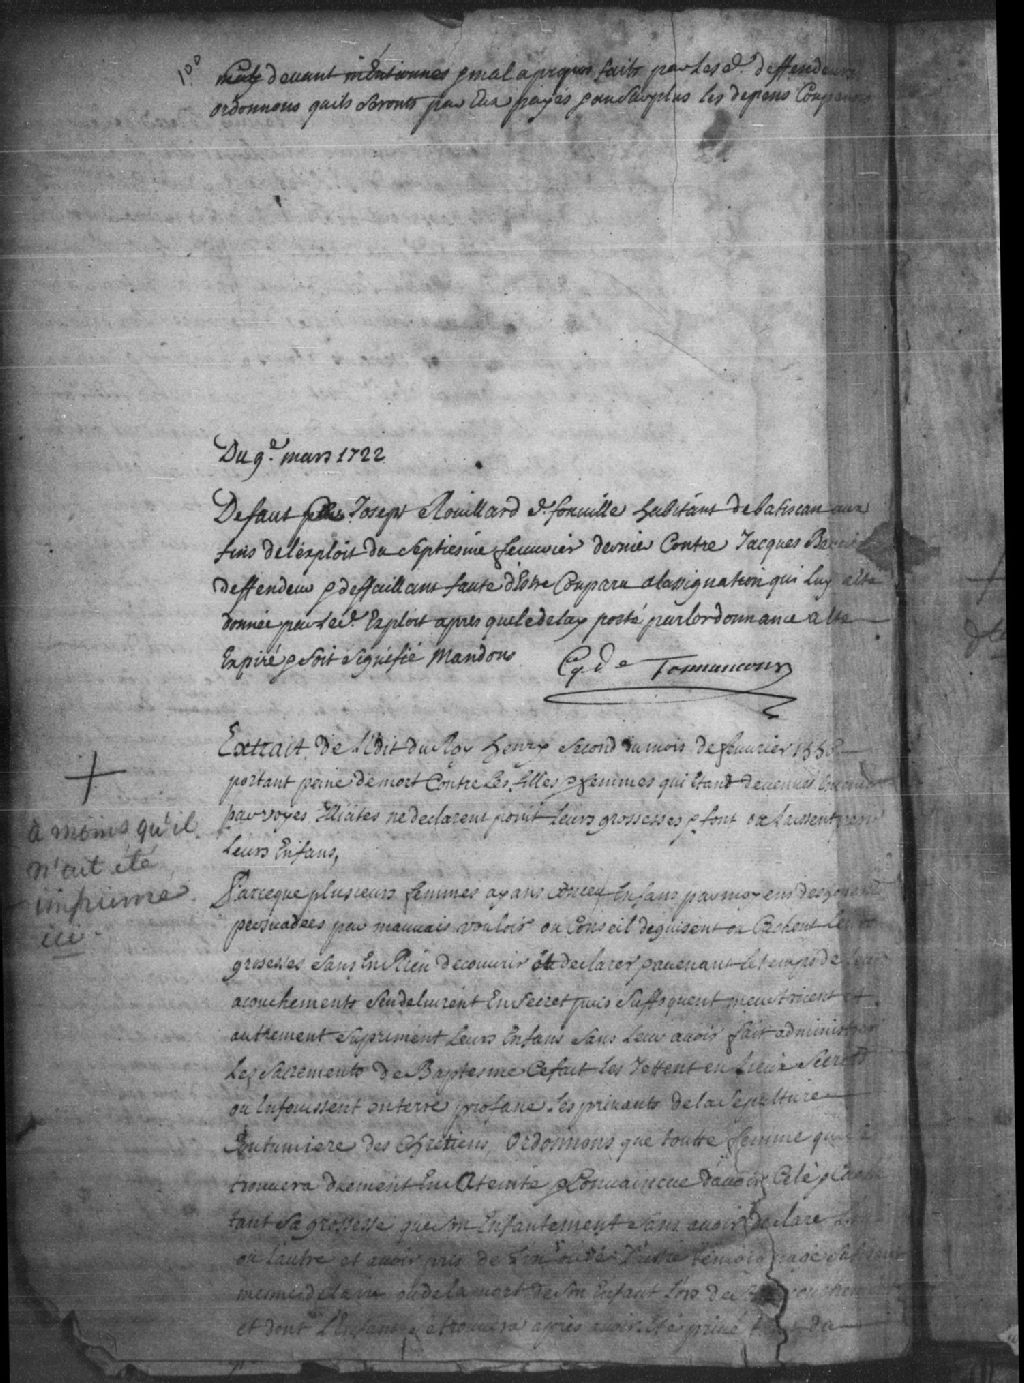 100
devant mentionnes & mal a propos faits par les d. deffendeurs
ordonnons quils seronts par Eux payés & au surplus les depens Compensés
Du 9e mars 1722
Defaut Joseph Rouillard d. fonville habitant de batiscan aux
fins de lexploit du Septiesme feuvrier dernier Contre Jacques
deffendeur & deffaillant faute d'Estre Comparu a lassignation qui luy a este
donnée par led. Exploit apres que le delay porté par lordonnance a Este
Expiré & soit signifié Mandons G. de Tonnancour
Extrait de L'Edit du Roy henry second du mois de feuvrier 1556
portant peine de mort Contre les filles & femmes qui Etant devenues
par voyes Illicites ne declarent point Leurs grossesses & font ou laissent perir
Leurs Enfans,
Parceque plusieurs femmes ayans Enfans par moyens
persuadées par mauvais vouloir ou Conseil deguisent ou Cachent
grossesses sans En Rien decouvrir et declarer & avenant le temps de leur
acouchements s'en delivrent En secret puis suffoquent meutrient et
autrement supriment Leurs Enfans sans Leur avoir fait administrer
Les sacrements de Baptesme Ce fait Les Jettent en Lieux Secrets
ou Enfouissent en terre profane Les privants de la sepulture
Coutumiere des Chretiens, Ordonnons que toutte femme qui se
trouvera duement Atteinte & Convaincue d'avoir Celé
tant sa grossesse que son Enfantement sans avoir declaré
ou lautre et avoir pris de L'un ou de L'autre temoignage
mesme de la vie ou de la mort de son Enfant Lors de
et dont L'Enfant se trouvera apres avoir Esté privé
+
a moins qu'il
n'ait été
imprimé
ici.